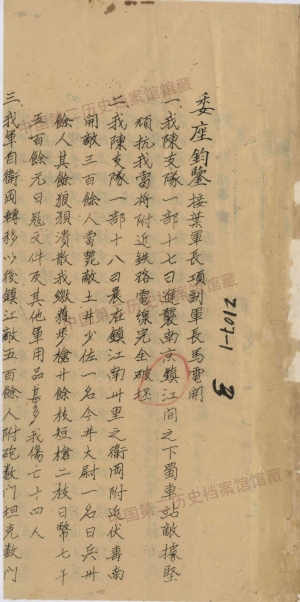 委座鈞鑒接葉軍長項副軍長馬電開
一我陳支隊一部十七日進襲南京鎮江間之下蜀車站敵據堅
頑抗我當將附近鉄路電線完全破坯
二我陳支隊一部十八日晨在鎮江南卅里之衛岡附近伏擊南
開敵三百餘人當斃敵土井少佐一名今井大尉一名日兵卅
餘人其餘狼狽潰散我繳獲步槍廿餘枝短槍二枝日幣七千
五百餘元日冠文件及其他軍用品甚多我傷亡十四人
三我軍自衛岡轉移以後鎮江敵五百餘人附砲數门坦克數门
2107-1
中国第二历史档案馆馆藏
中国第二历史档案馆馆藏
中国第二历史档案馆馆藏